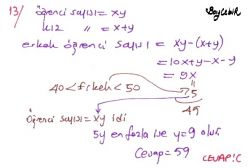 13/ öğrenci sayısı = xy
kız " = x+y
erkek öğrenci sayısı = xy-(x+y)
= 10x+y-x-y
= 9x
40 < Erkek < 50
5
45
Öğrenci sayısı = xy idi
5y en fazla ise y=9 olur
Cevap = 59
CEVAP: C